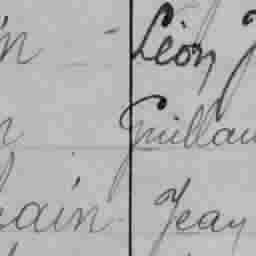 in - Léon J
n Guillau
cain Jean